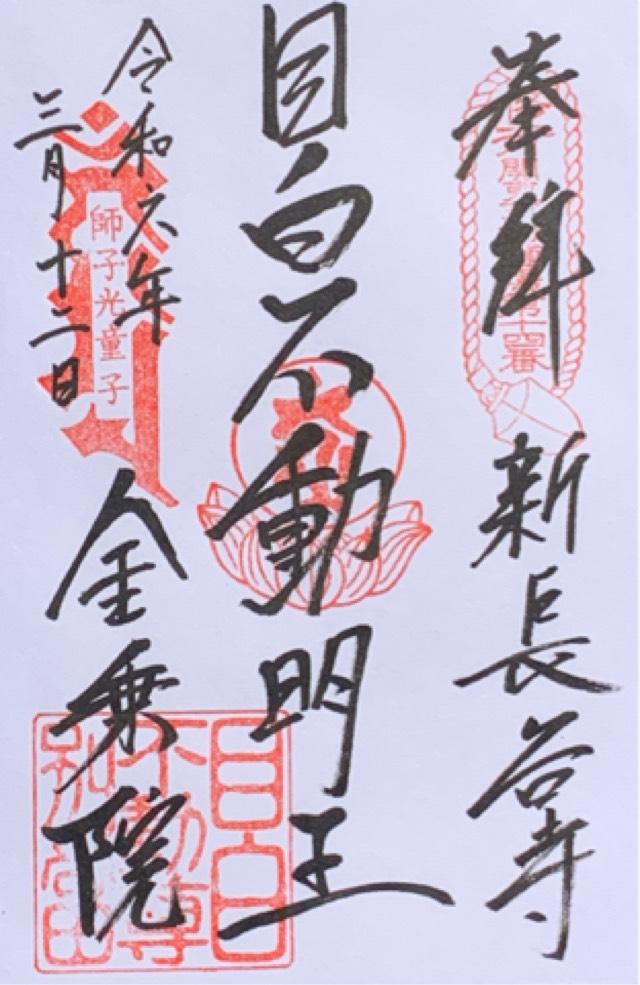 奉拝
新長谷寺
目白不動明王
令和六年
三月十二日
師子光童子
金乗院
目白
不動尊
別當印